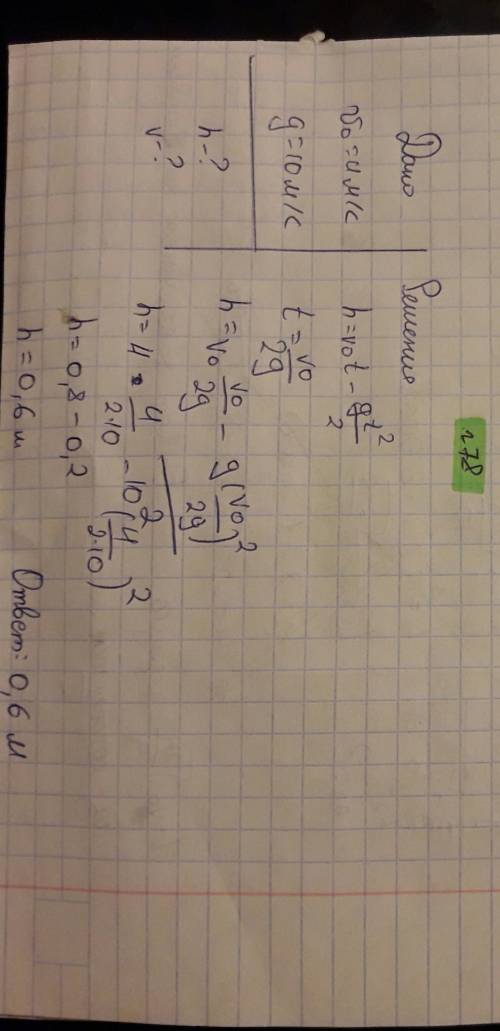 178
Дано
v₀ = 4 м/с
g = 10 м/с
h - ?
v - ?
Решение
h = v₀t - gt²/2
t = v₀/2g
h = v₀ v₀/2g - g(v₀/2g)²/2
h = 4 · 4/2·10 - 10(4/2·10)²/2
h = 0,8 - 0,2
h = 0,6 м
Ответ: 0,6 м